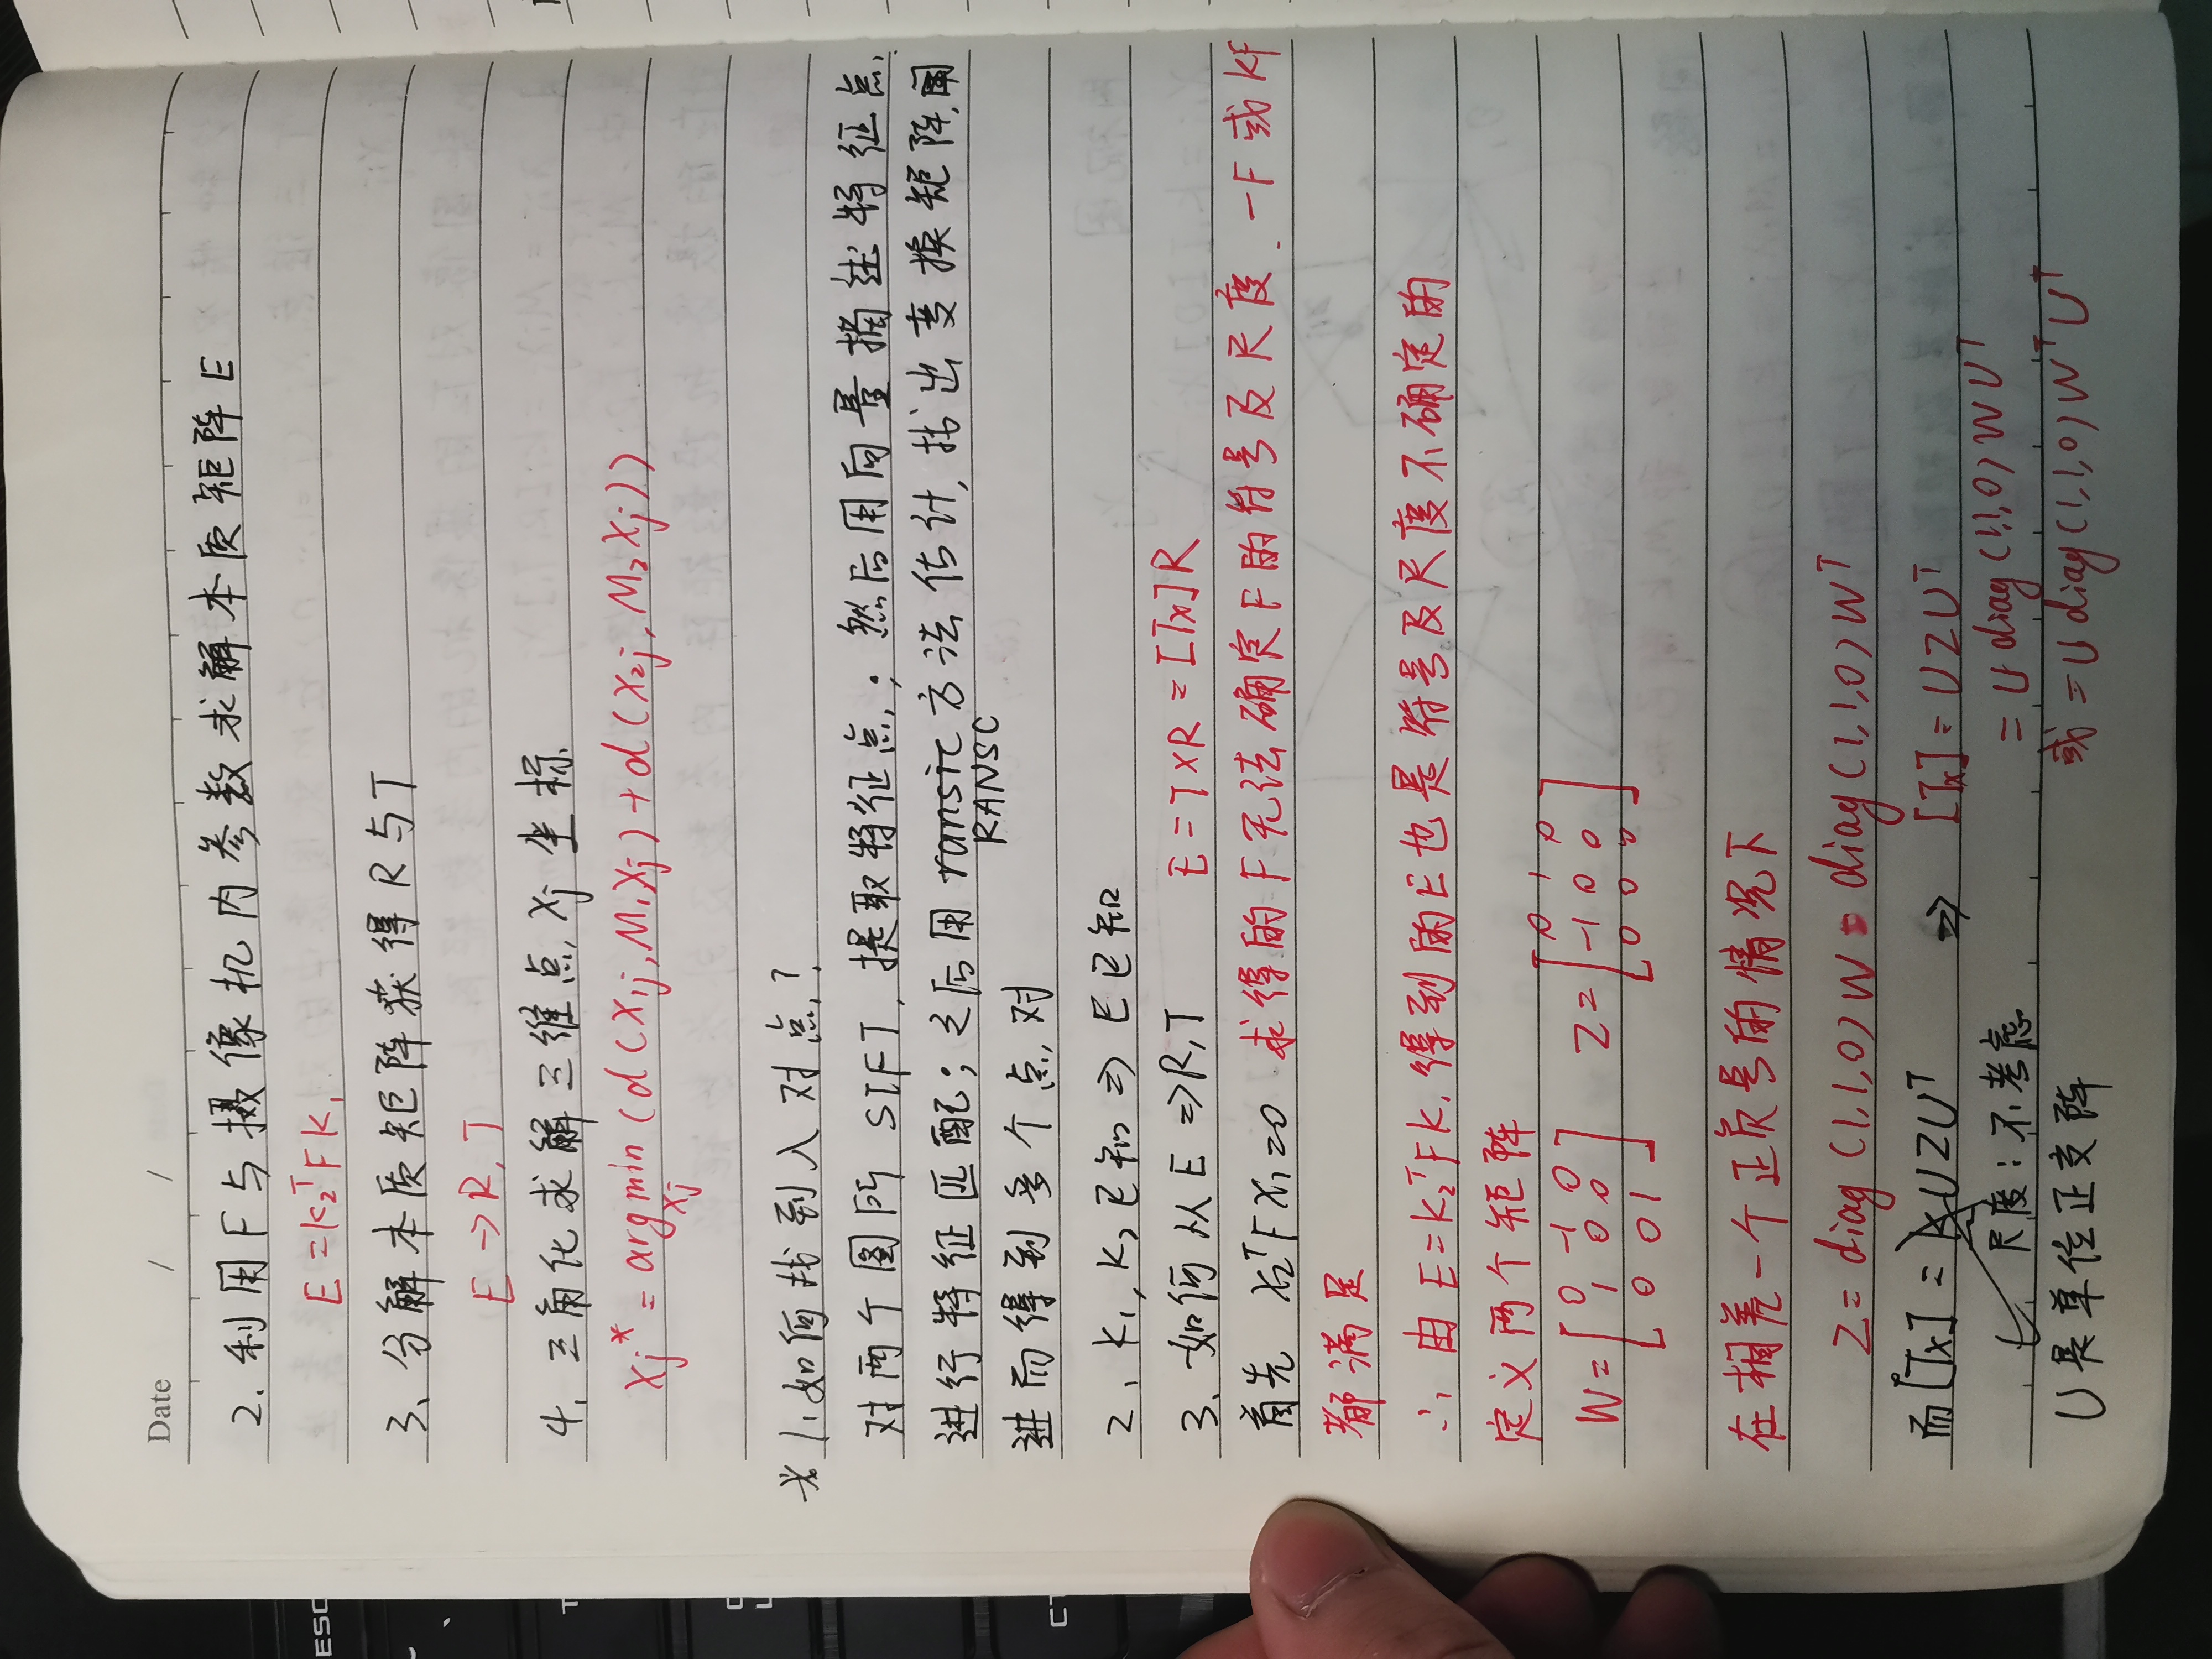 Date / /
2. 利用F与摄像机内参数求解本质矩阵E
E = K₂ᵀFK₁
3、分解本质矩阵获得R与T
E → R,T
4、三角化求解三维点Xj坐标
Xj* = argmin (d(x₁j, M₁Xj) + d(x₂j, M₂Xj))
Xj
※ 1、如何找到八对点?
对两个图片 SIFT, 提取特征点; 然后用向量描述特征点,
进行特征匹配; 之后用 ransic 方法估计, 找出变换矩阵,
RANSC
进而得到多个点对
2、K₁, K₂已知 ⇒ E已知
3、如何从E ⇒ R,T E = T×R = [T×]R
首先 x₂ᵀFx₁=0 求得的F无法确定F的符号及尺度. -F或kF
都满足
∴ 由E=K₂ᵀFK₁得到的E也是符号及尺度不确定的
定义两个矩阵
W = [0 -1 0 Z = [0 1 0
1 0 0 -1 0 0
0 0 1] 0 0 0]
在相差一个正负号的情况下
Z = diag(1,1,0)W = diag(1,1,0)Wᵀ
而[T×] = kUZUᵀ ⇒ [T×] = UZUᵀ
尺度: 不考虑 = U diag(1,1,0)WUᵀ
U是单位正交阵 或 = U diag(1,1,0)WᵀUᵀ
ESC